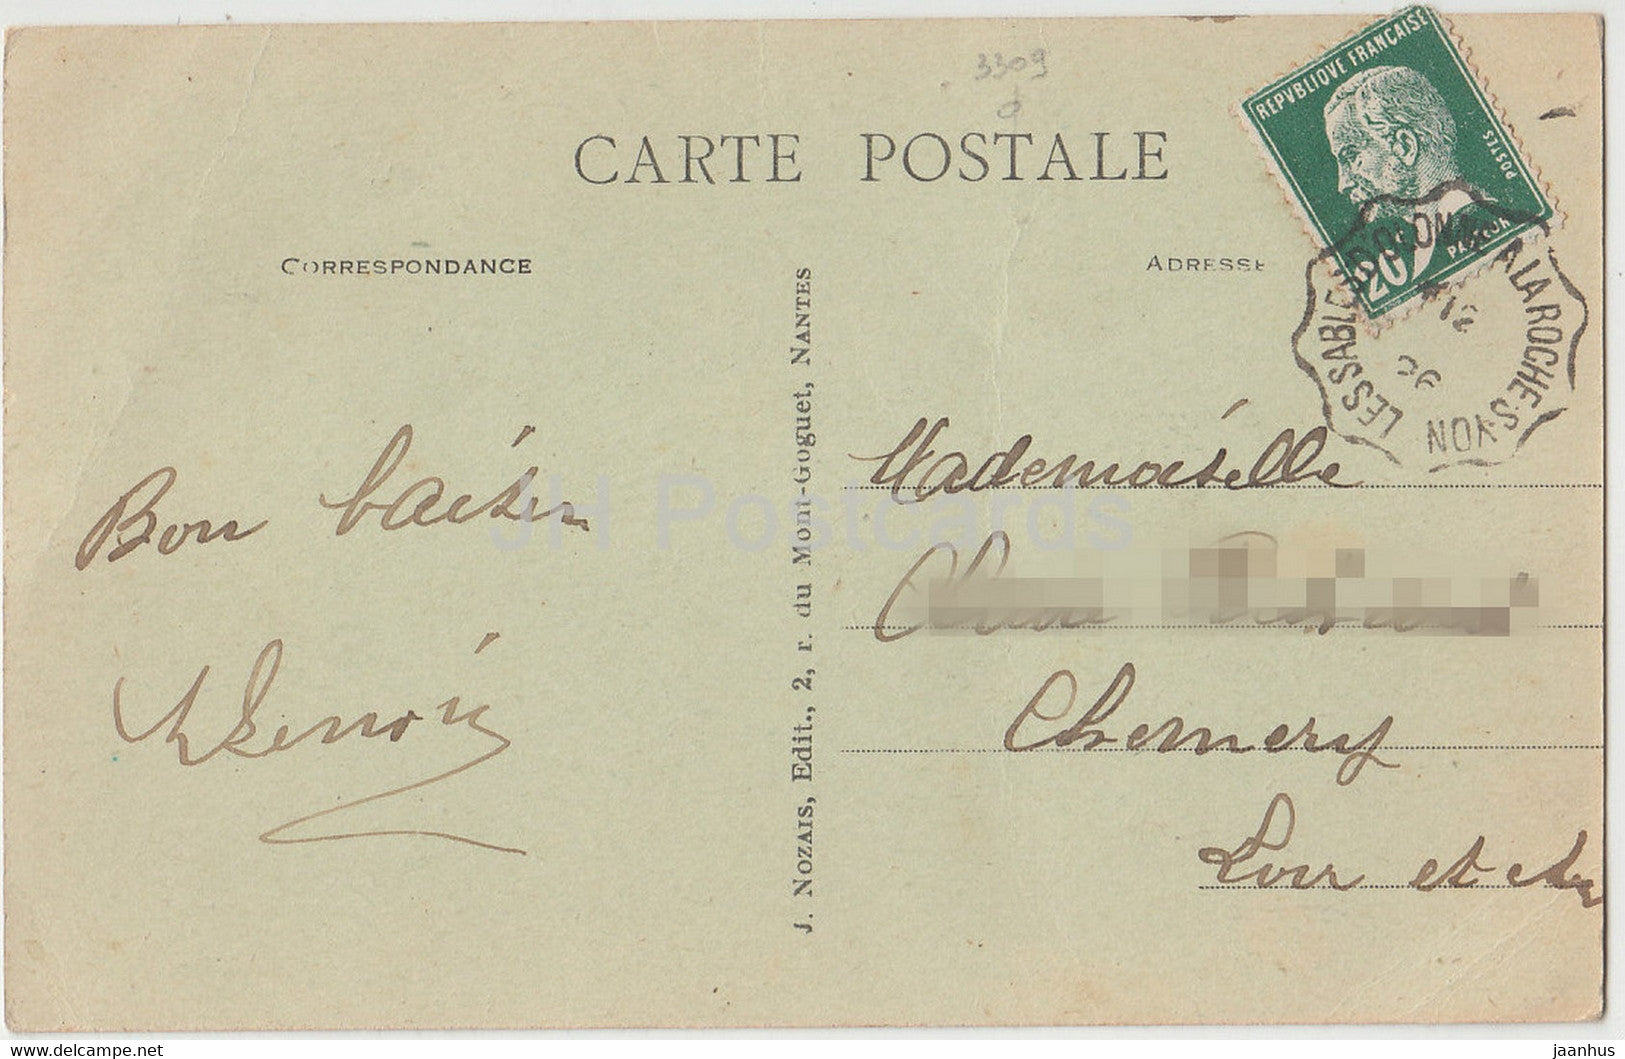 3309
CARTE POSTALE
REPVBLIQUE FRANÇAISE
POSTES
20c
PASTEUR
LES SABLES D'OLONNE A LA ROCHE-S-YON
12
26
CORRESPONDANCE
ADRESSE
Bon baiser
J. NOZAIS, Edit., 2, r. du Mont-Goguet, NANTES
Mademoiselle
Chemery
Loir et cher
JH Postcards
www.delcampe.net
jaanhus